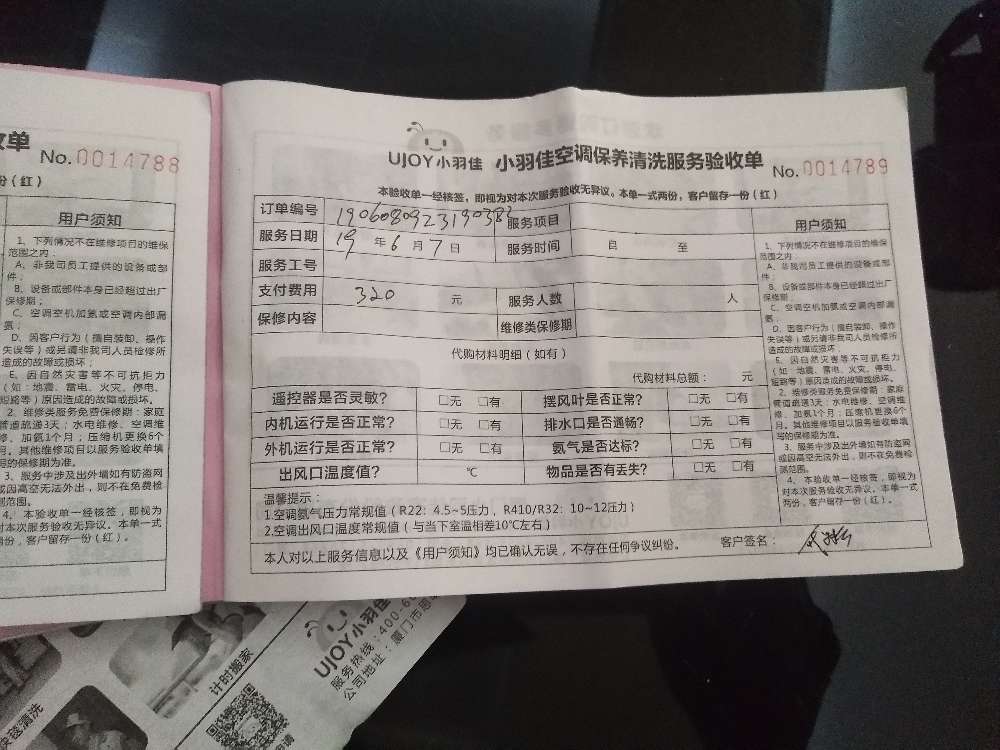 收单
No.0014788
份（红）
用户须知
1、下列情况不在维修项目的维保
范围之内：
A、非我司员工提供的设备或部
件；
B、设备或部件本身已经超过出厂
保修期；
C、空调空机加氨或空调内部漏
氨；
D、因客户行为（擅自装卸、操作
失误等）或另请非我司人员检修所
造成的故障或损坏；
E、因自然灾害等不可抗拒力
（如：地震、雷电、火灾、停电、
短路等）原因造成的故障或损坏。
2、维修类服务免费保修期：家庭
管道疏通3天；水电维修、空调维
修、加氨1个月；压缩机更换6个
月。其他维修项目以服务验收单填
写的保修期为准。
3、服务中涉及出外墙如有防盗网
或因高空无法外出，则不在免费检
测范围。
4、本验收单一经核签，即视为
对本次服务验收无异议。本单一式
两份，客户留存一份（红）。
UJOY小羽佳 小羽佳空调保养清洗服务验收单
No.0014789
本验收单一经核签，即视为对本次服务验收无异议。本单一式两份，客户留存一份（红）
订单编号 服务项目
服务日期 19 年 6 月 7 日 服务时间 自 至
服务工号
支付费用 320 元 服务人数 人
保修内容 维修类保修期
代购材料明细（如有）
代购材料总额： 元
遥控器是否灵敏？ □无 □有 摆风叶是否正常？ □无 □有
内机运行是否正常？ □无 □有 排水口是否通畅？ □无 □有
外机运行是否正常？ □无 □有 氨气是否达标？ □无 □有
出风口温度值？ ℃ 物品是否有丢失？ □无 □有
温馨提示：
1.空调氨气压力常规值（R22：4.5~5压力，R410/R32：10~12压力）
2.空调出风口温度常规值（与当下室温相差10℃左右）
本人对以上服务信息以及《用户须知》均已确认无误，不存在任何争议纠纷。 客户签名：
用户须知
1、下列情况不在维修项目的维保
范围之内：
A、非我司员工提供的设备或部
件；
B、设备或部件本身已经超过出厂
保修期；
C、空调空机加氨或空调内部漏
氨；
D、因客户行为（擅自装卸、操作
失误等）或另请非我司人员检修所
造成的故障或损坏；
E、因自然灾害等不可抗拒力
（如：地震、雷电、火灾、停电、
短路等）原因造成的故障或损坏。
2、维修类服务免费保修期：家庭
管道疏通3天；水电维修、空调维
修、加氨1个月；压缩机更换6个
月。其他维修项目以服务验收单填
写的保修期为准。
3、服务中涉及出外墙如有防盗网
或因高空无法外出，则不在免费检
测范围。
4、本验收单一经核签，即视为
对本次服务验收无异议。本单一式
两份，客户留存一份（红）。
UJOY小羽佳
服务热线：400-6
公司地址：厦门市思
计时搬家
毯清洗